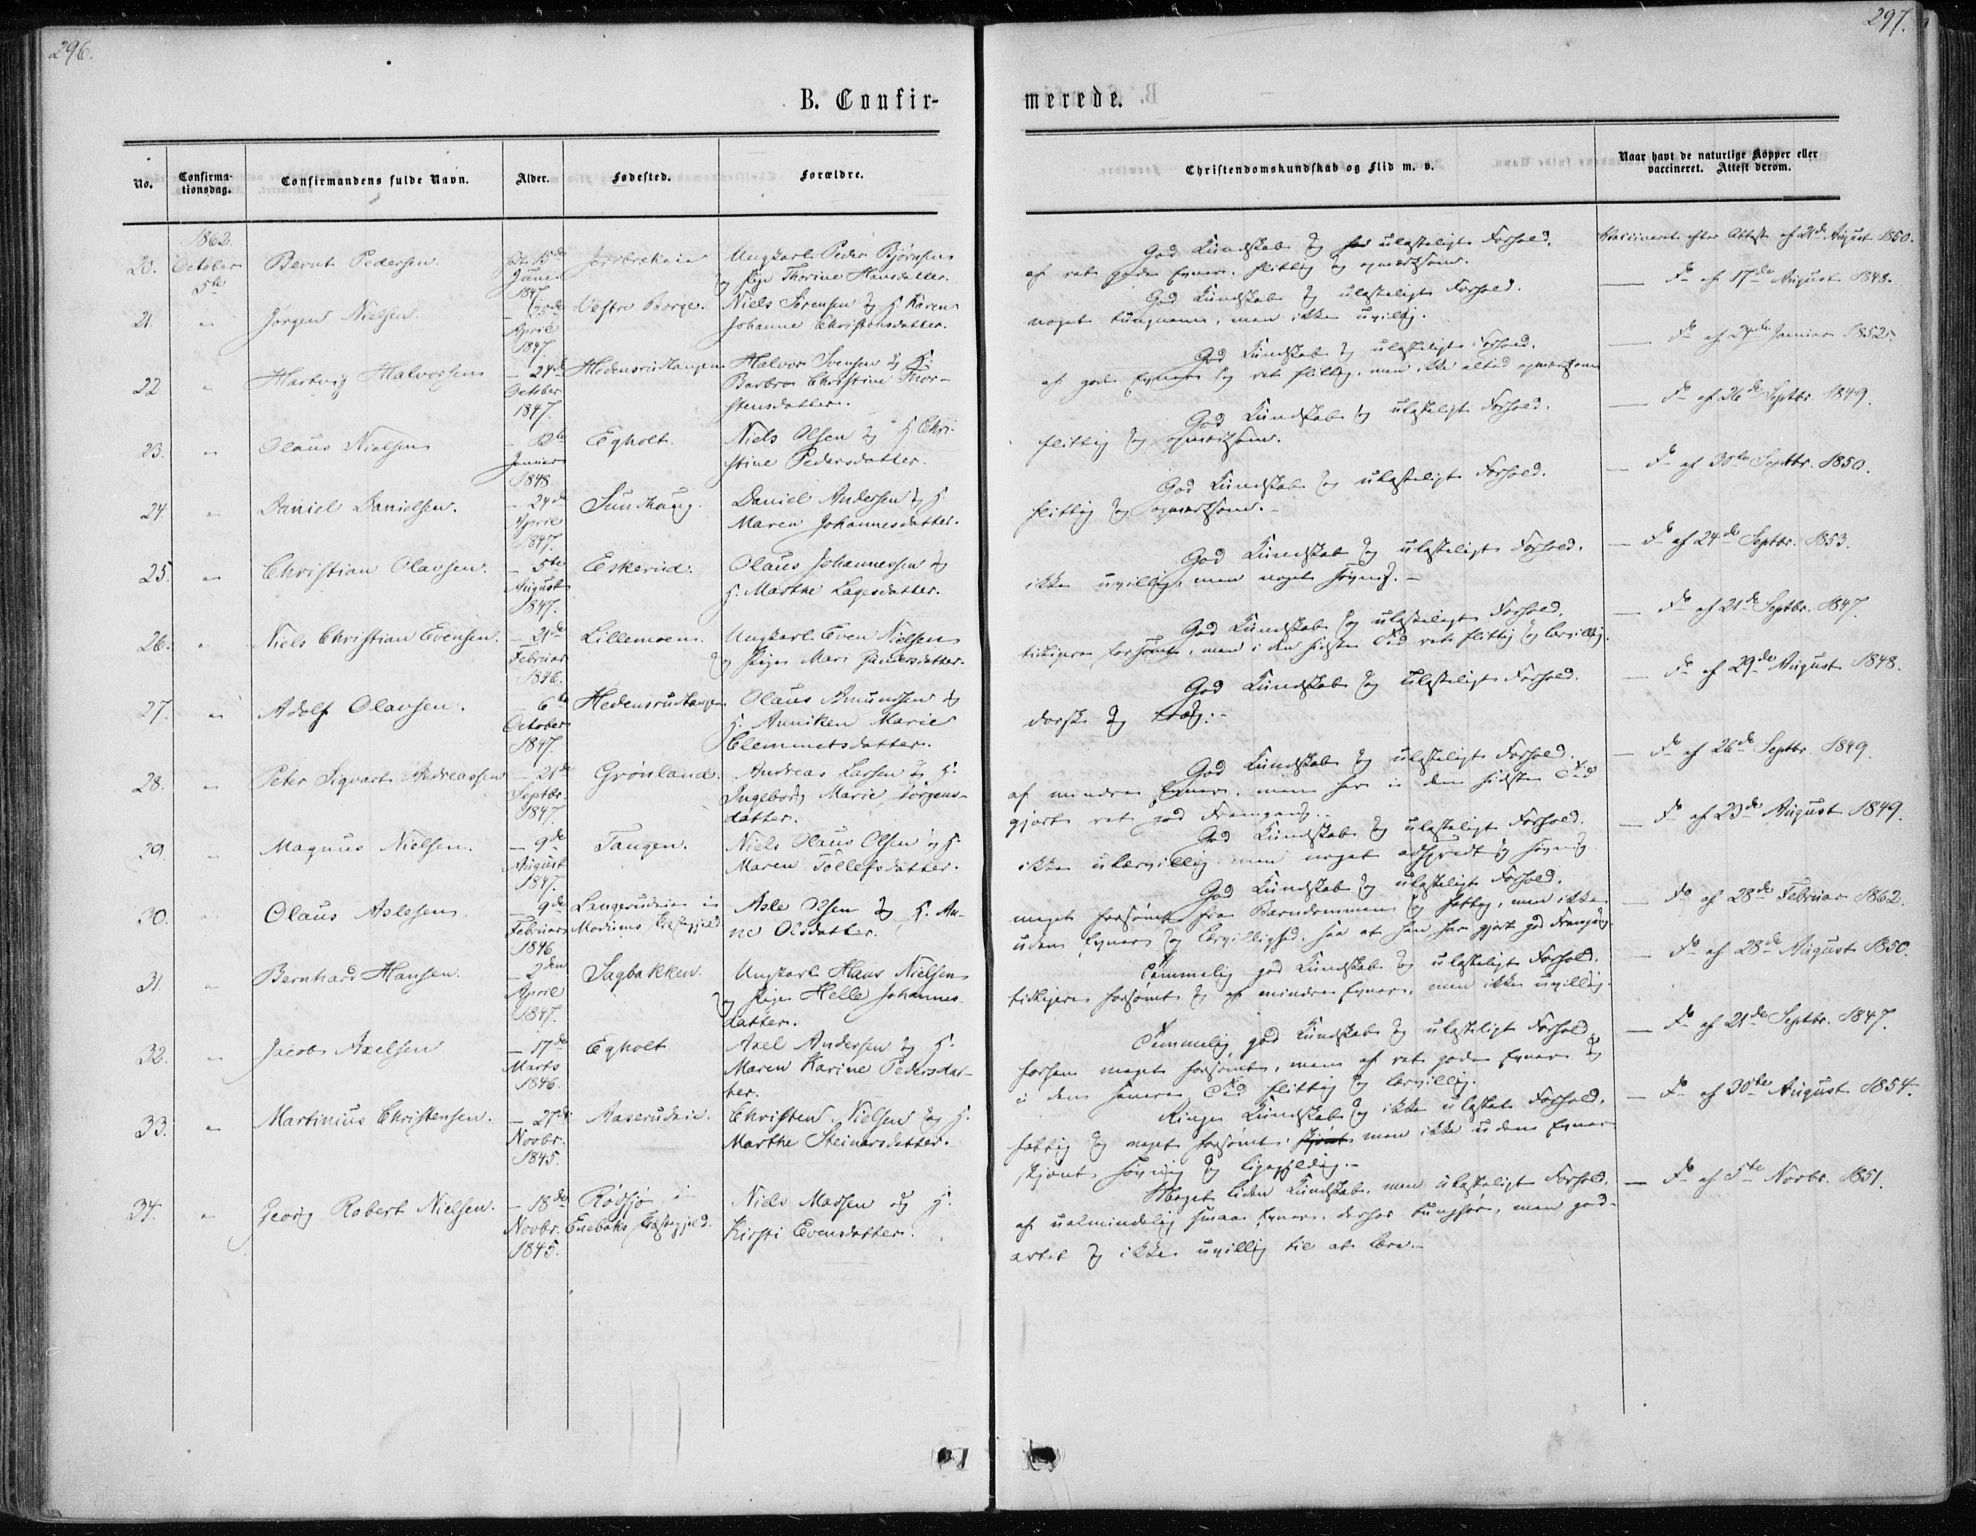 296.
297.
B. Confir-
merede.
No.
Confirma-
tionsdag.
Confirmandens fulde Navn.
Alder.
Fødested.
Forældre.
Christendomskundskab og Flid m. v.
Naar havt de naturlige Kopper eller
vaccineret. Attest derom.
1862.
20. October Bernt Pedersen. 15de Ungkarl Peder Bjørnsen
5te Juni og Pige Thorine Hansdatter.
1847
God Kundskab og ulasteligt Forhold,
af ret gode Evner, flittig og opmærksom.
Vaccineret efter Attest af 21de August 1850.
21. " Jørgen Nielsen. Vestre Borge. Niels Sørensen og H. Karen
April Johanne Christiansdatter.
1847.
God Kundskab og ulasteligt Forhold.
noget tungnem, men ikke uvillig.
— Do af 17de August 1848.
22 " Hartvig Halvorsen — 24de Hedensrudtangen Halvor Svensen og H.
October Barbro Christine Thor-
1847. stensdatter.
God Kundskab og ulasteligt Forhold.
af gode Evner og ret flittig, men ikke altid opmærksom
— Do af Januar 1852.
23. " Olaus Nielsen — 12te Egholt. Niels Olsen og H. Chri-
Januar stine Pedersdatter.
1848
God Kundskab og ulasteligt Forhold.
flittig og opmærksom.
— Do af 26de Septbr. 1849.
24. " Daniel Danielsen. — 24de Sundhaug. Daniel Andersen og H.
April Maren Johannesdatter.
1847.
God Kundskab og ulasteligt Forhold.
flittig og opmærksom. —
— Do af 30te Septbr. 1850.
25. " Christian Olausen. — 5te Eskerud. Olaus Johannessen og
August H. Marthe Lagesdatter.
1847.
God Kundskab og ulasteligt Forhold.
ikke uvillig, men noget —
— Do af 24de Septbr. 1853.
26. " Niels Christian Evensen. — 21de Lillemoen. Ungkarl Even Nielsen
Februar og Pige Mari Gundersdatter.
1846.
God Kundskab og ulasteligt Forhold.
tidligere forsømt, men i den sidste Tid ret flittig og lærvillig.
— Do af 21de Septbr. 1847.
27. " Adolf Olausen. — 6te Hedensrudtangen Olaus Amundsen og
October H. Anniken Marie
1847. Clemmetsdatter.
God Kundskab og ulasteligt Forhold.
dorsk og
— Do af 29de August 1848.
28. " Peter Sigvart Andreassen — 21de Grønland. Andreas Larsen og H.
Septbr. Ingeborg Marie Jørgens-
1847. datter.
God Kundskab og ulasteligt Forhold.
af mindre Evner, men har i den sidste Tid
gjort ret god Fremgang.
— Do af 26de Septbr. 1849.
29. " Magnus Nielsen. — 9de Tangen. Niels Olaus Olsen og H.
August Maren Tollefsdatter.
1847.
God Kundskab og ulasteligt Forhold.
ikke ulærvillig men noget adspredt og
— Do af 23de August 1849.
30. " Olaus Aslesen — 9de Langerudeie i Asle Olsen og H. An-
Februar Modums Præstegjeld ne Olsdatter.
1846
God Kundskab og ulasteligt Forhold.
meget forsømt fra Barndommen og fattig, men ikke
uden Evner og lærvillighed, saa at han har gjort god Fremgang.
— Do af 28de Februar 1862.
31 " Bernhard Hansen. — 2den Sagbakken. Ungkarl Hans Nielsen
April og Pige Helle Johannes-
1847. datter.
Temmelig god Kundskab og ulasteligt Forhold.
tidligere forsømt og af mindre Evner, men ikke uvillig.
— Do af 28de August 1850.
32. " Jacob Axelsen — 17de Egholt Axel Andersen og H.
Marts Maren Karine Pedersdat-
1846. ter.
Temmelig god Kundskab og ulasteligt Forhold.
forhen meget forsømt, men af ret gode Evner og
i den senere Tid flittig og lærvillig.
— Do af 21de Septbr. 1847.
33. " Martinius Christensen. — 27de Aaserudeie. Christen Nielsen og H.
Novbr. Marthe Steinersdatter.
1845.
Ringe Kundskab og ikke ulastet Forhold.
fattig og meget forsømt, men ikke uden Evner
skjønt og ligegyldig. —
— Do af 30te August 1854.
34. " Georg Robert Nielsen. — 18de Rødsjø i Niels Madsen og H.
Novbr. Enebaks Præstegjeld. Kirsti Evensdatter.
1845.
Meget liden Kundskab, men ulasteligt Forhold.
af ualmindelig smaae Evner, derhos tunghør, men god-
artet og ikke uvillig til at lære. —
— Do af 5te Novbr. 1851.